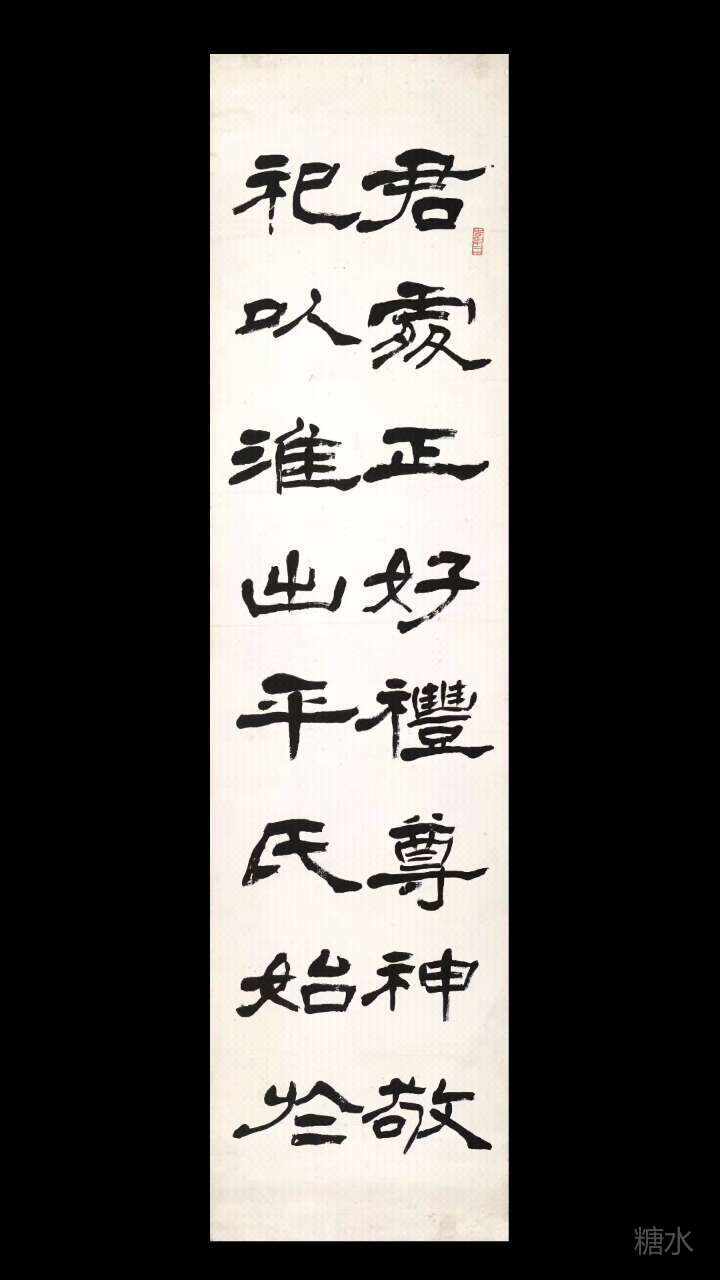 君處正好禮尊神敬
祀以淮出平氏始於
糖水